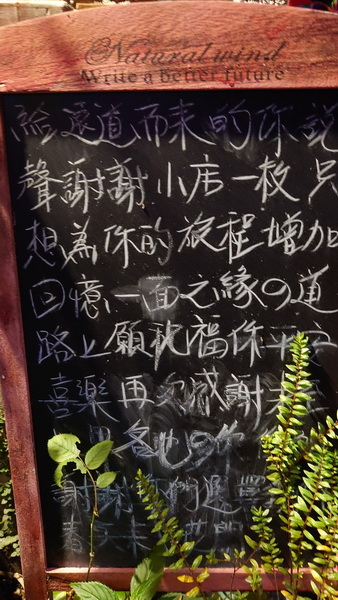 Natural wind
Write a better future
給遠道而來的你說
聲謝謝小店一枚只
想為你的旅程增加
回憶一面之緣の道
路上願祝福你平安
喜樂再次感謝來
各地の你
謝謝們